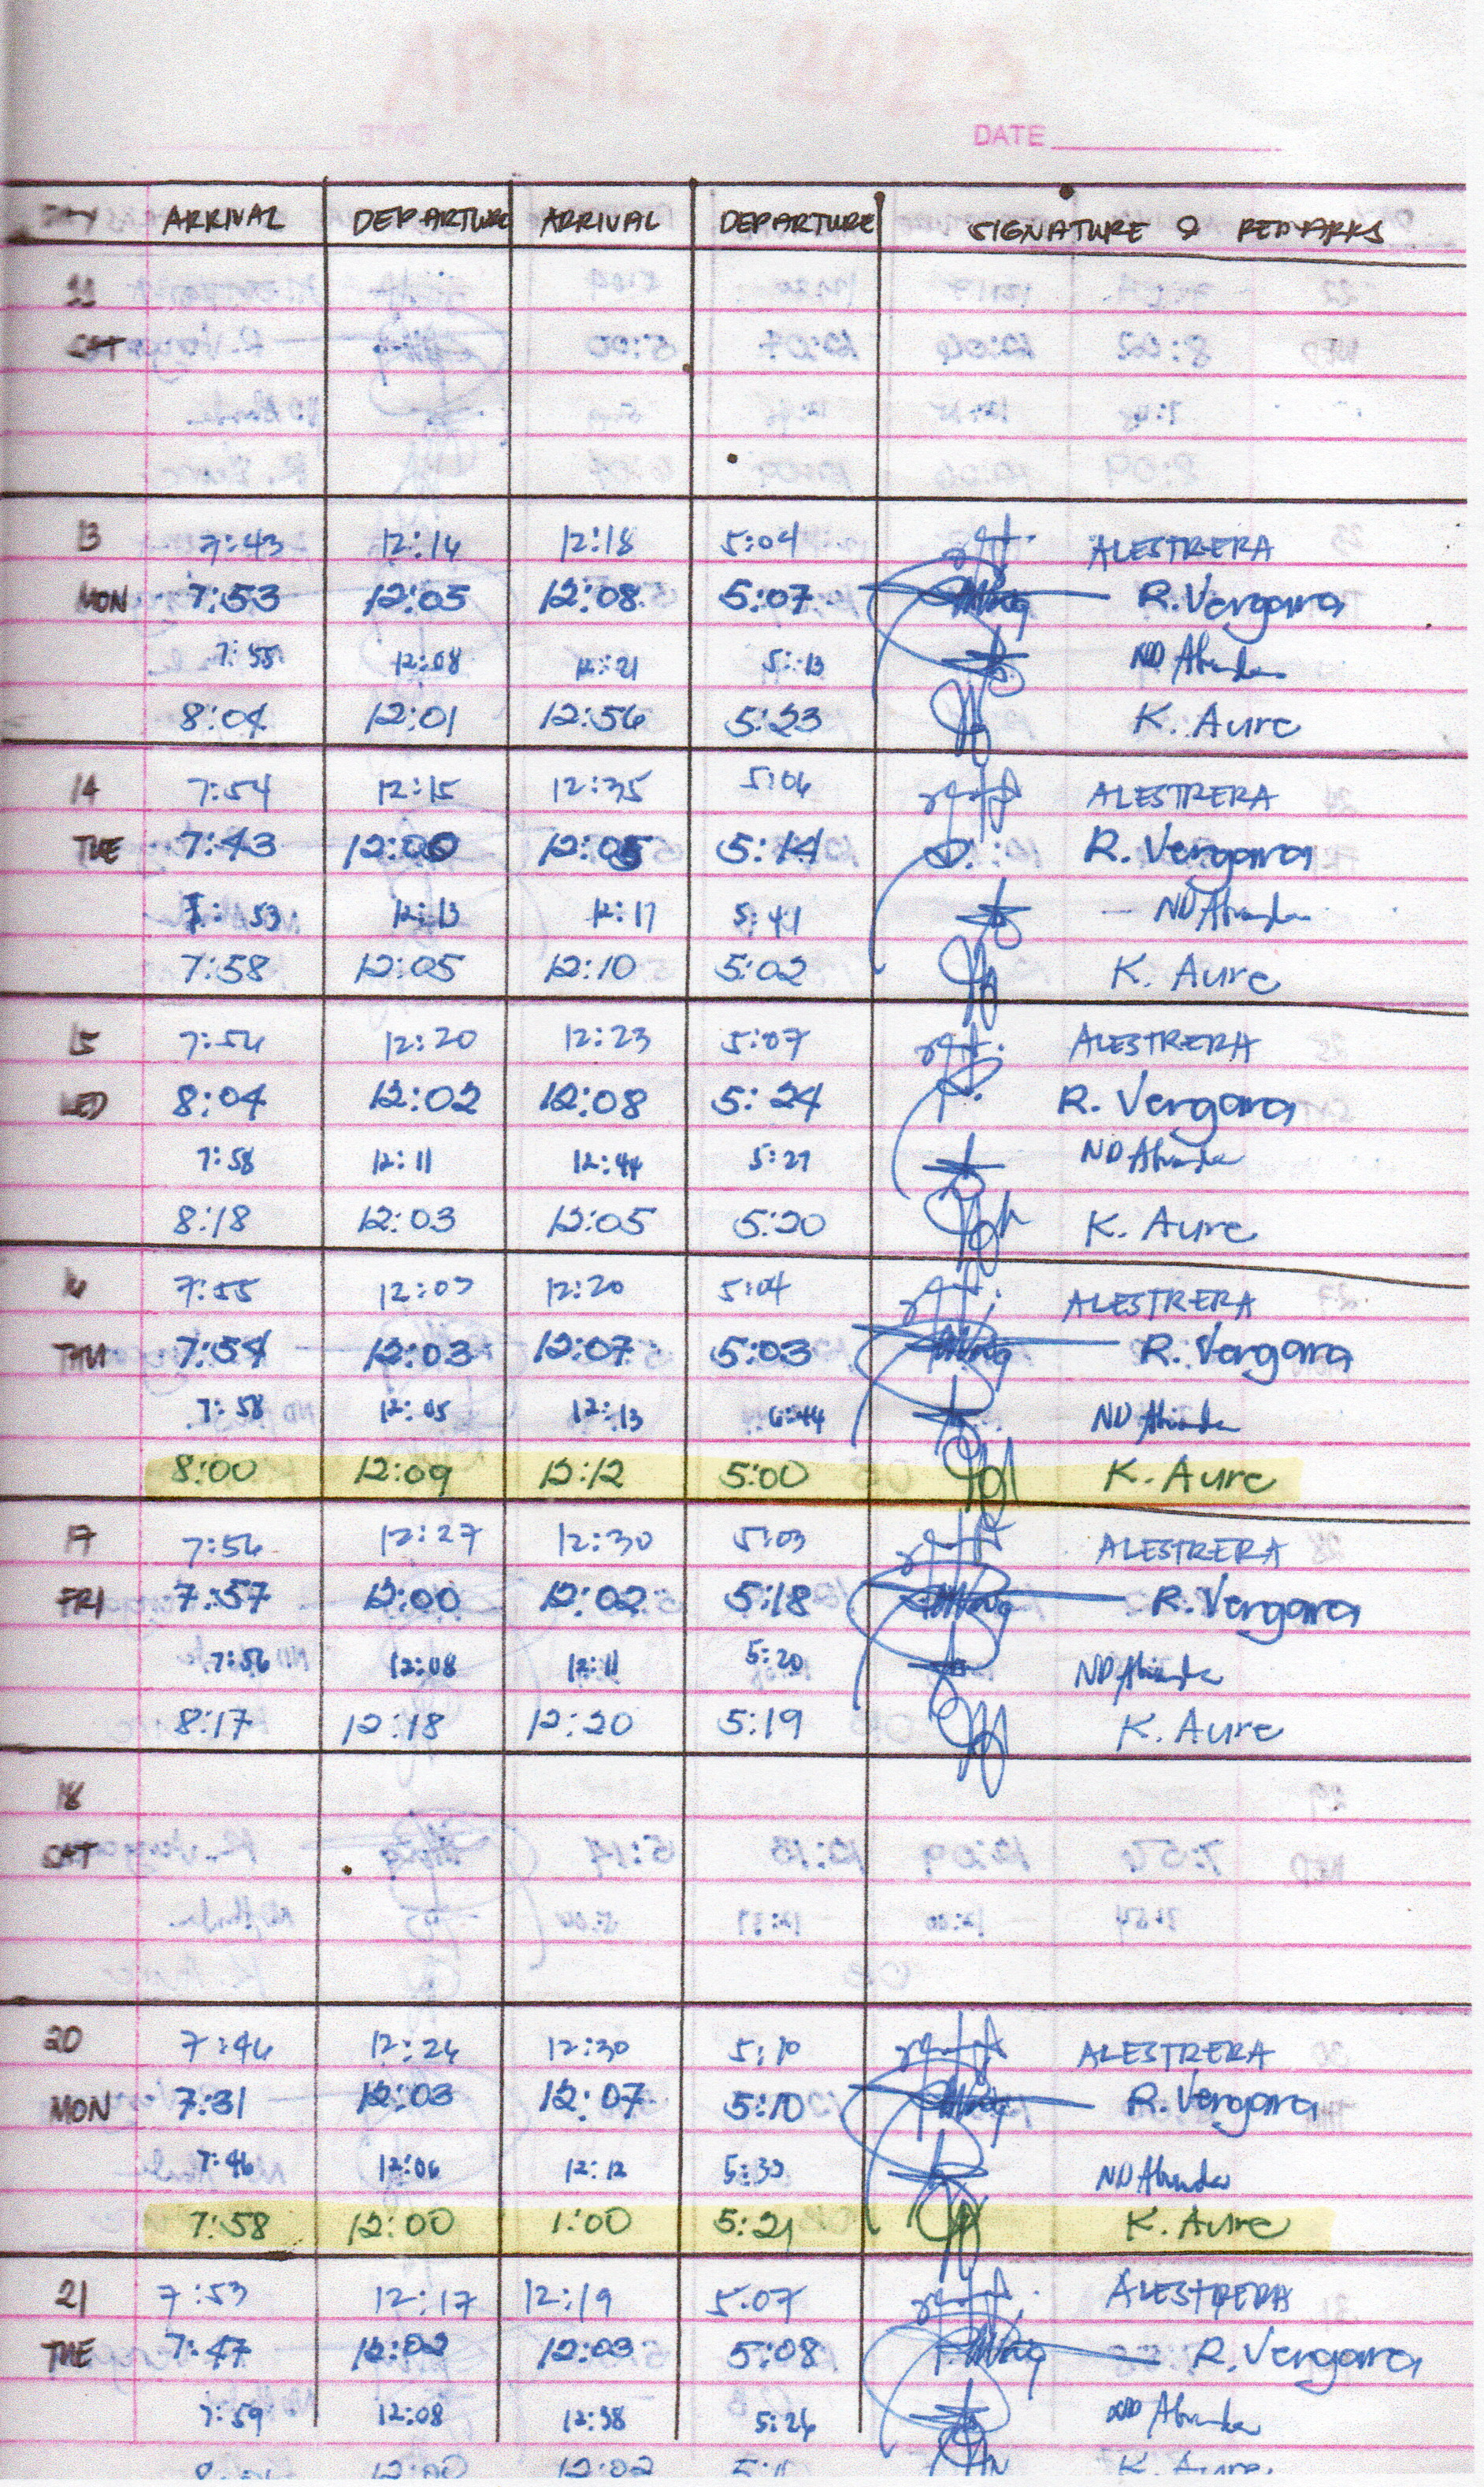 DATE
DAY ARRIVAL DEPARTURE ARRIVAL DEPARTURE SIGNATURE & REMARKS
11
SAT
13 7:43 12:16 12:18 5:04 ALESTRERA
MON 7:53 12:05 12:08 5:07 R. Vergara
7:55 12:08 12:21 5:13 ND
8:04 12:01 12:56 5:23 K. Aure
14 7:54 12:15 12:35 5:06 ALESTRERA
TUE 7:43 12:00 12:05 5:14 R. Vergara
7:53 12:13 12:17 5:41 ND
7:58 12:05 12:10 5:02 K. Aure
15 7:56 12:20 12:23 5:07 ALESTRERA
WED 8:04 12:02 12:08 5:24 R. Vergara
7:58 12:11 12:44 5:27 ND
8:18 12:03 12:05 5:20 K. Aure
16 7:55 12:07 12:20 5:04 ALESTRERA
THU 7:54 12:03 12:07 5:03 R. Vergara
7:58 12:05 12:13 6:44 ND
8:00 12:09 12:12 5:00 K. Aure
17 7:56 12:27 12:30 5:03 ALESTRERA
FRI 7:57 12:00 12:02 5:18 R. Vergara
7:56 12:08 12:11 5:20 ND
8:17 12:18 12:20 5:19 K. Aure
18
SAT
20 7:46 12:26 12:30 5:10 ALESTRERA
MON 7:31 12:03 12:07 5:10 R. Vergara
7:46 12:06 12:12 5:33 ND
7:58 12:00 1:00 5:21 K. Aure
21 7:53 12:17 12:19 5:07 ALESTRERA
TUE 7:47 12:02 12:03 5:08 R. Vergara
7:59 12:08 12:38 5:26 ND
12:00 12:02 K. Aure